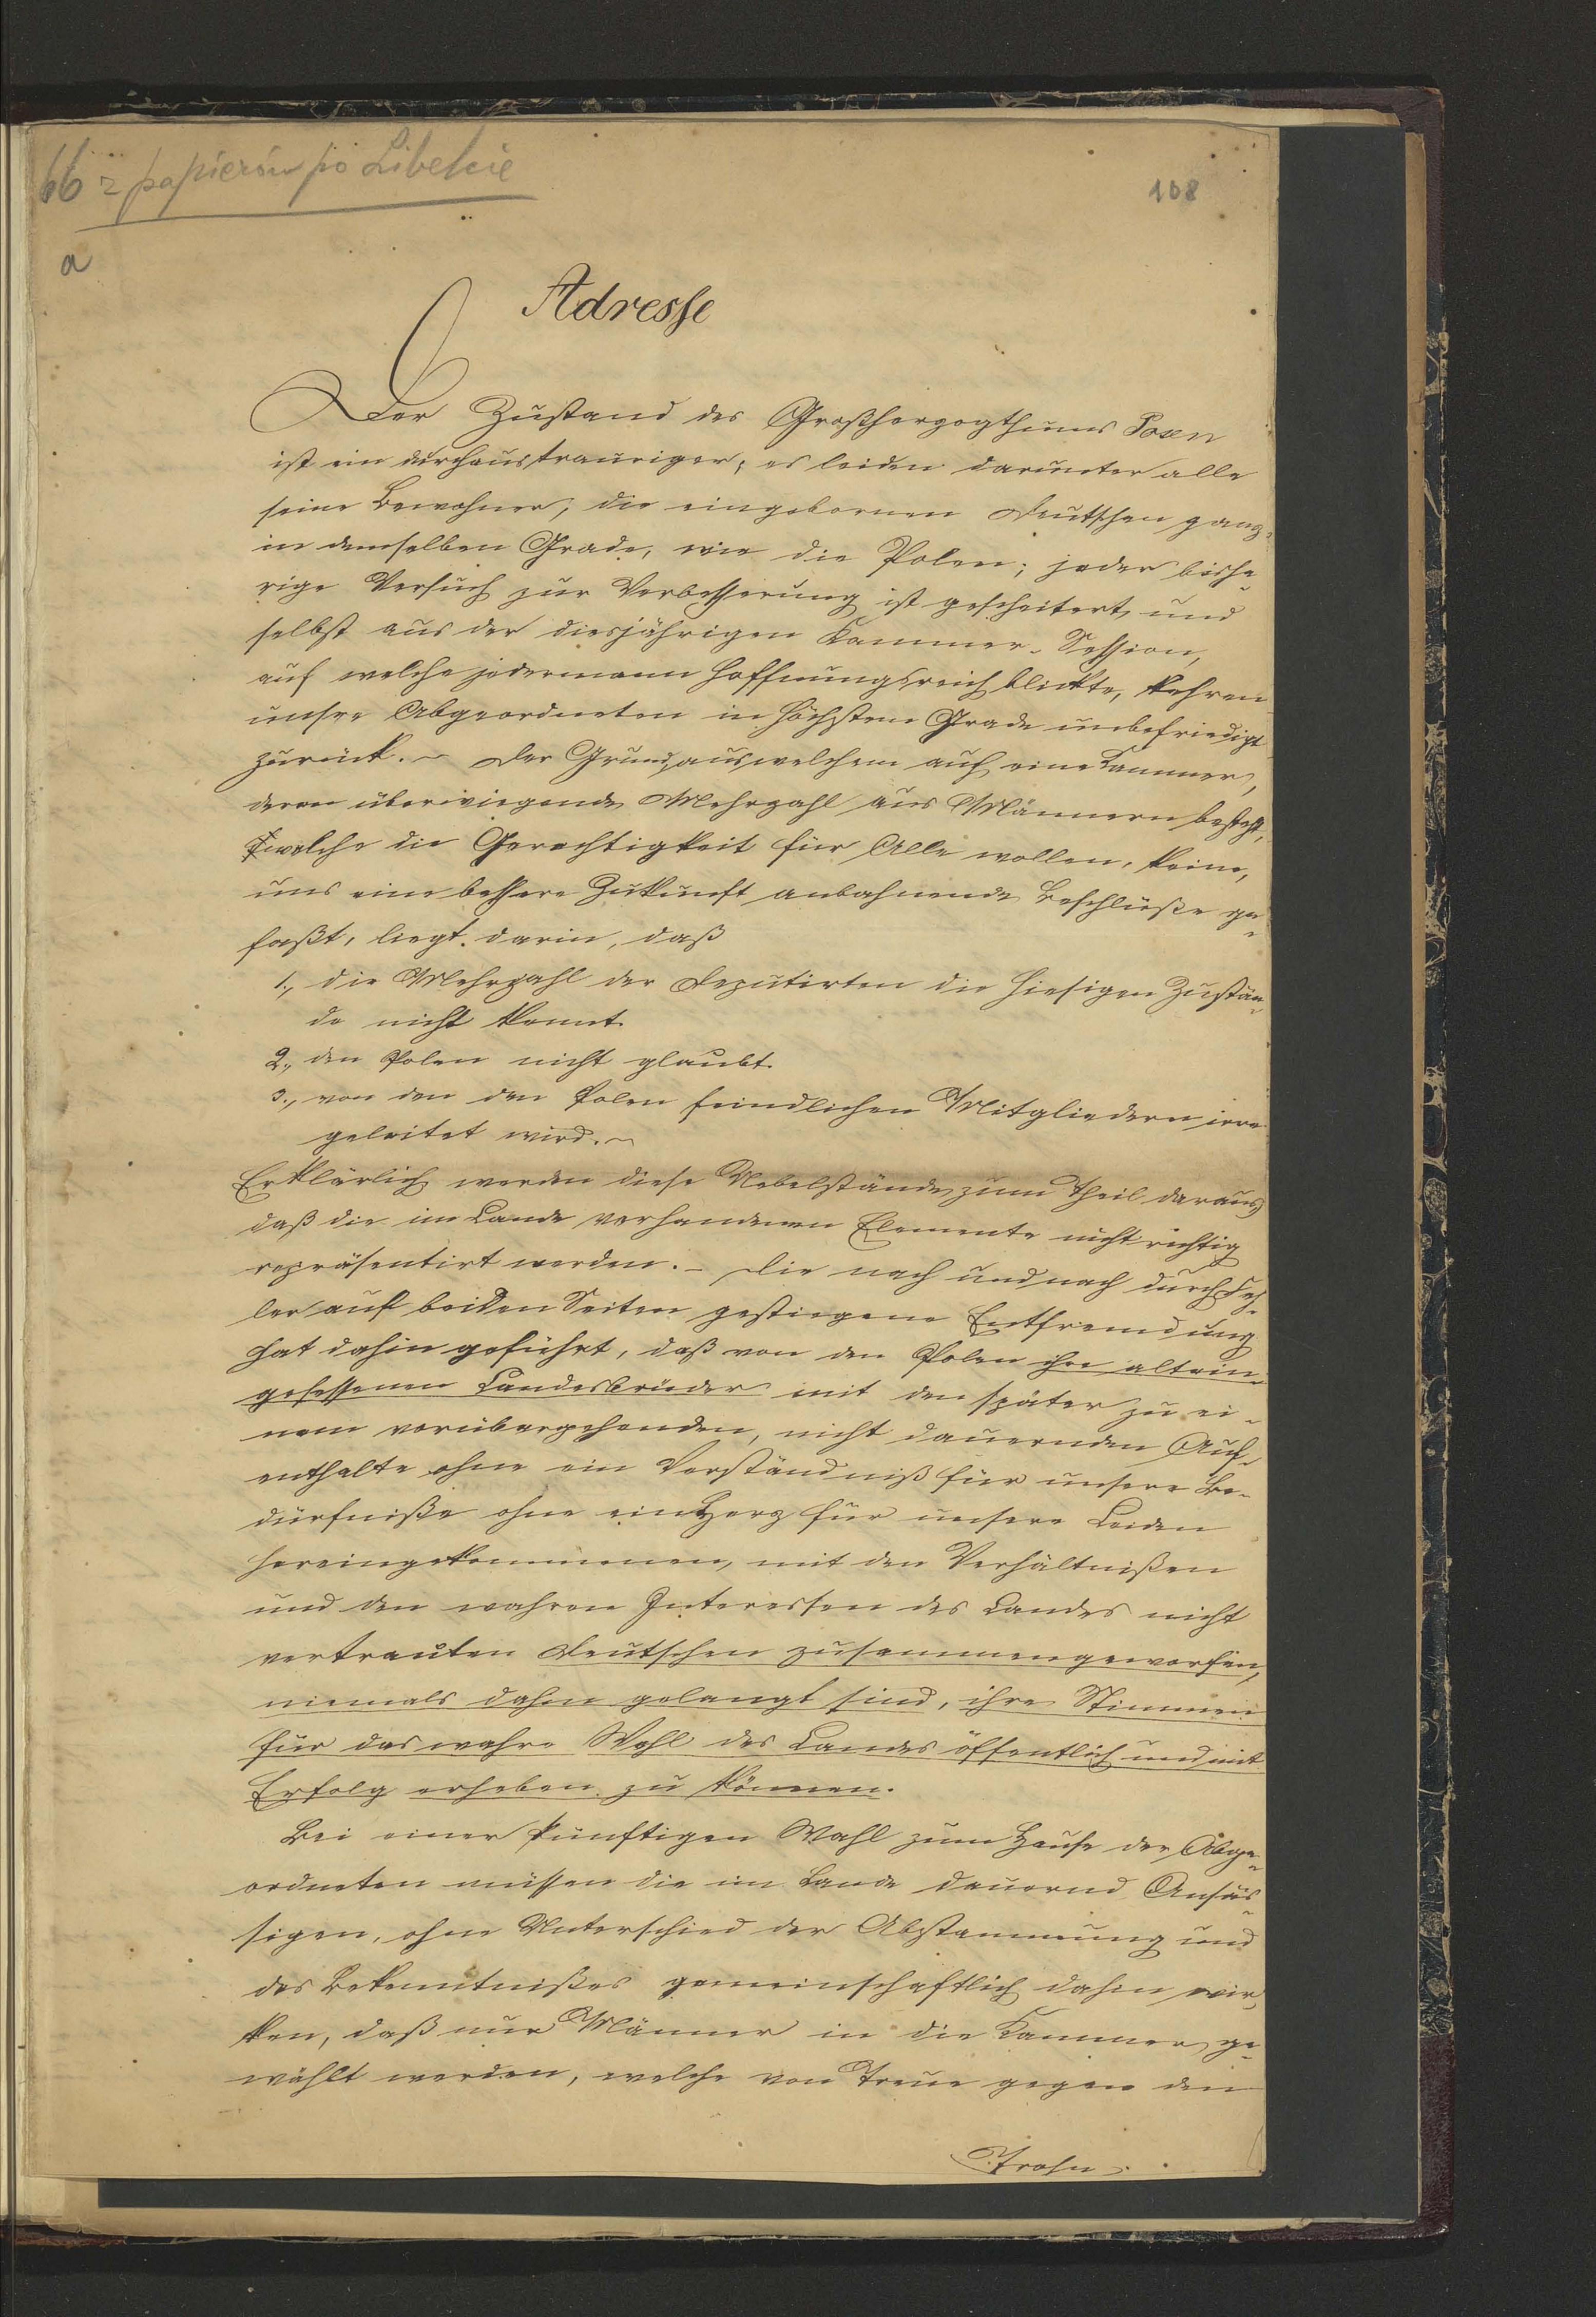 66 z papierów po Libelcie
108
a
Adresse
Der Zustand des Großherzogthums Posen
ist ein durchaus trauriger; es leiden darunter alle
seine Bewohner, die eingebornen Deutschen ganz
in demselben Grade, wie die Polen; jeder bishe-
rige Versuch zur Verbesserung ist gescheitert, und
selbst aus der diesjährigen Kammer-Session,
auf welche jedermann hoffnungsreich blickte, kehren
unsre Abgeordneten in höchstem Grade unbefriedigt
zurück. – Der Grund, aus welchem auf eine Kammer,
deren überwiegende Mehrzahl aus Männern besteht,
welche die Gerechtigkeit für Alle wollen, keine,
uns eine bessere Zukunft anbahnende Beschlüße ge-
faßt, liegt darin, daß
1., die Mehrzahl der Deputirten die hiesigen Zustän-
de nicht kennt.
2., den Polen nicht glaubt.
3., von den den Polen feindlichen Mitgliedern irre
geleitet wird. –
Erklärlich werden diese Uebelstände zum Theil daraus,
daß die im Lande vorhandenen Elemente nicht richtig
repräsentirt werden. – Die nach und nach durch Feh-
ler auf beiden Seiten gestiegene Entfremdung
hat dahin geführt, daß von den Polen ihre altein-
gesessenen Landesbrüder mit den später zu ei-
nem vorübergehenden, nicht dauernden Auf-
enthalte ohne ein Verständniß für unsere Be-
dürfniße ohne ein Herz für unsere Leiden
hereingekommenen, mit den Verhältnißen
und den wahren Interessen des Landes nicht
vertrauten Deutschen zusammengeworfen,
niemals dahin gelangt sind, ihre Stimmen
für das wahre Wohl des Landes öffentlich und mit
Erfolg erheben zu können.
Bei einer künftigen Wahl zum Hause der Abge-
ordneten müssen die im Lande dauernd Ansäs-
sigen, ohne Unterschied der Abstammung und
des Bekenntnißes gemeinschaftlich dahin wir-
ken, daß nur Männer in die Kammer ge-
wählt werden, welche von Treue gegen den
Trohn